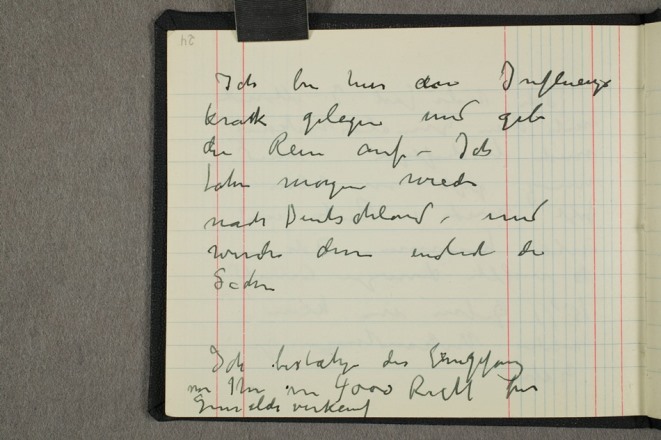 24
Ich bin hier an Influenza
krank gelegen und gebe
die Reise auf – Ich
fahre morgen wieder
nach Deutschland, und
werde dann endlich die
Ich bestätige den Empfang
von Ihnen von 4000 RM für
Gemäldeverkauf